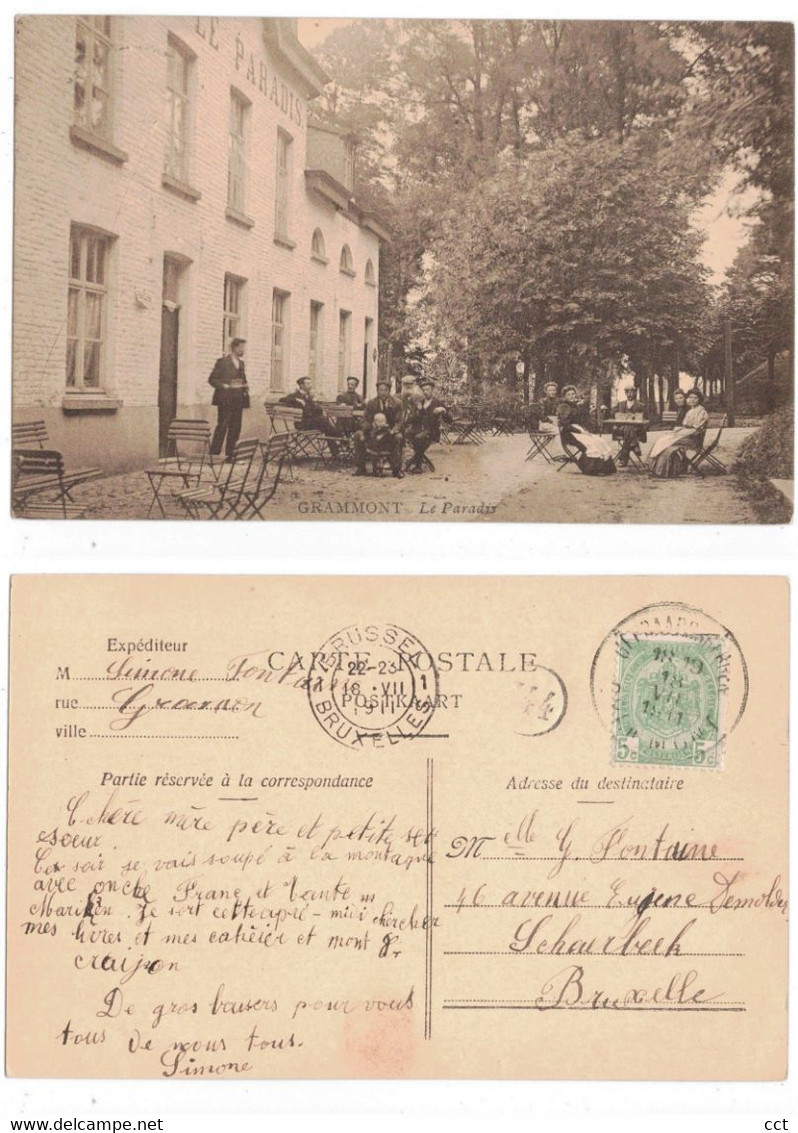 LE PARADIS
GRAMMONT Le Paradis
Expéditeur
M Simone Fontaine
rue Grammon
ville
CARTE POSTALE
POSTKAART
BRUSSEL
22-23
18 VII
1911
BRUXELLES
1
5c 5c
Partie réservée à la correspondance
Adresse du destinataire
Chère mère père et petite
soeur.
Ce soir je vais soupé à la montagne
avec oncle Franc et tante
Mariken. Je sort cette après-midi chercher
mes livres et mes cahéier et mont
craijon
De gros beusers pour vous
tous de nous tous.
Simone
Melle G. Fontaine
46 avenue Eugene Demolder
Schaerbeek
Bruxelle
cct